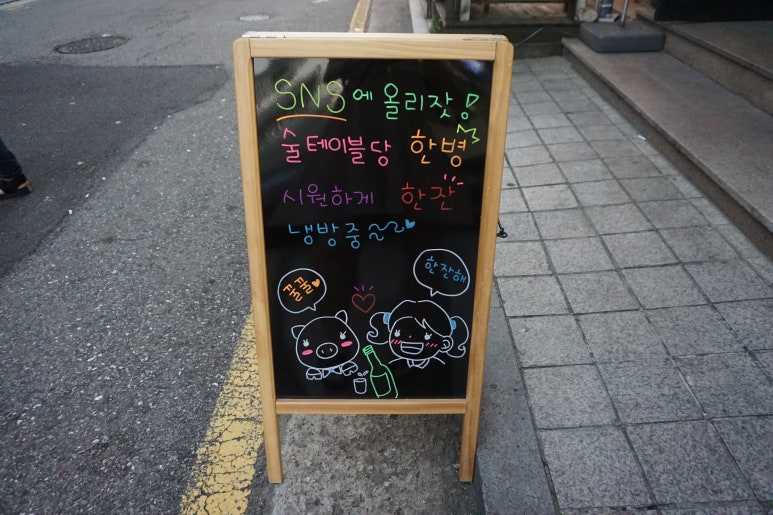 SNS에 올리잣!
술 테이블당 한병
시원하게 한잔
냉방중~~♥
한잔해